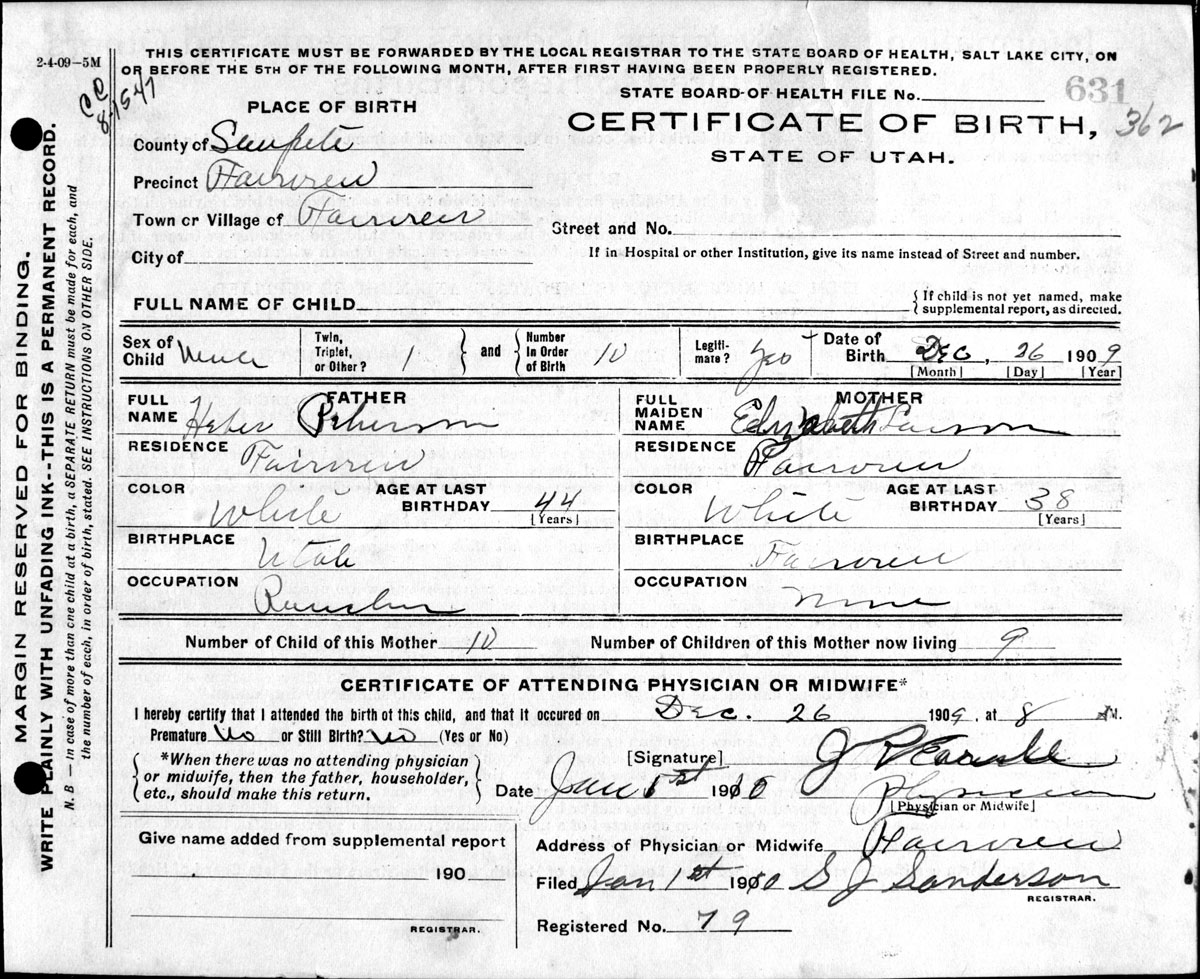 2-4-09-5M
THIS CERTIFICATE MUST BE FORWARDED BY THE LOCAL REGISTRAR TO THE STATE BOARD OF HEALTH, SALT LAKE CITY, ON
OR BEFORE THE 5TH OF THE FOLLOWING MONTH, AFTER FIRST HAVING BEEN PROPERLY REGISTERED.
STATE BOARD OF HEALTH FILE No. 631
362
PLACE OF BIRTH
CERTIFICATE OF BIRTH,
STATE OF UTAH.
County of Sanpete
Precinct Fairview
Town or Village of Fairview
Street and No.
City of
If in Hospital or other Institution, give its name instead of Street and number.
FULL NAME OF CHILD
{If child is not yet named, make
supplemental report, as directed.
Sex of Child Male
Twin, Triplet, or Other? 1 } and { Number In Order of Birth 10
Legitimate? Yes
Date of Birth Dec, 26 1909
[Month] [Day] [Year]
FATHER
FULL NAME Heber Peterson
RESIDENCE Fairview
COLOR White AGE AT LAST BIRTHDAY 44
[Years]
BIRTHPLACE Utah
OCCUPATION Rancher
MOTHER
FULL MAIDEN NAME Elizabeth Larson
RESIDENCE Fairview
COLOR White AGE AT LAST BIRTHDAY 38
[Years]
BIRTHPLACE Fairview
OCCUPATION None
Number of Child of this Mother 10 Number of Children of this Mother now living 9
CERTIFICATE OF ATTENDING PHYSICIAN OR MIDWIFE*
I hereby certify that I attended the birth of this child, and that it occured on Dec. 26 1909, at 8 M.
Premature No or Still Birth? No (Yes or No)
*When there was no attending physician
or midwife, then the father, householder,
etc., should make this return.
[Signature]
Date Jan 1st 1910 Physician
[Physician or Midwife]
Give name added from supplemental report
190
REGISTRAR.
Address of Physician or Midwife Fairview
Filed Jan 1st 1910 S J Sanderson
REGISTRAR.
Registered No. 79
MARGIN RESERVED FOR BINDING.
WRITE PLAINLY WITH UNFADING INK--THIS IS A PERMANENT RECORD.
N. B — In case of more than one child at a birth, a SEPARATE RETURN must be made for each, and
the number of each, in order of birth, stated. SEE INSTRUCTIONS ON OTHER SIDE.